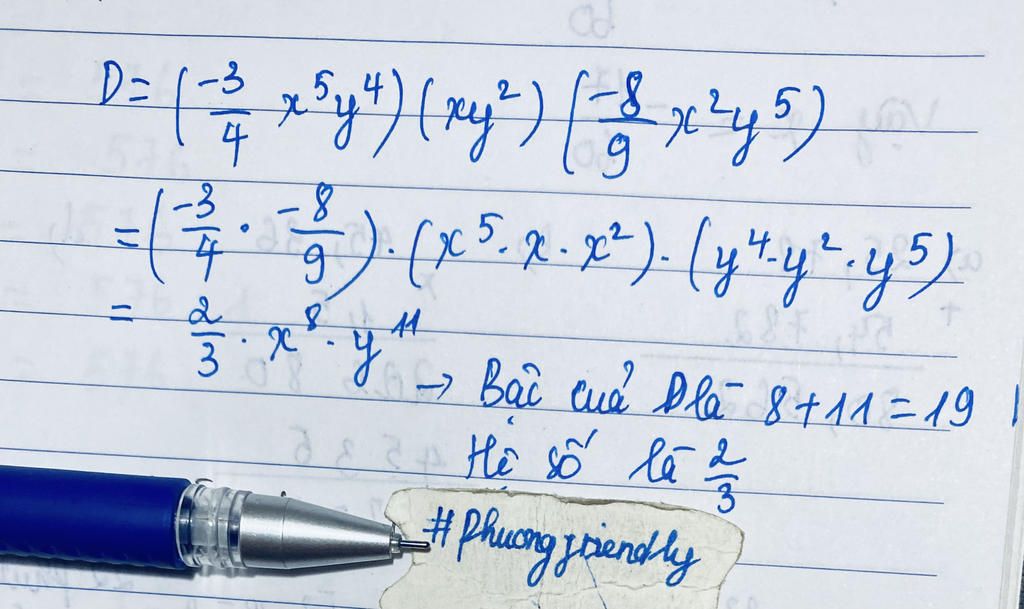 D = (-3/4 x⁵y⁴) (xy²) (-8/9 x²y⁵)
= (-3/4 · -8/9) · (x⁵ · x · x²) · (y⁴ · y² · y⁵)
= 2/3 · x⁸ · y¹¹
→ Bậc của D là 8 + 11 = 19
Hệ số là 2/3
#phuongfriendly